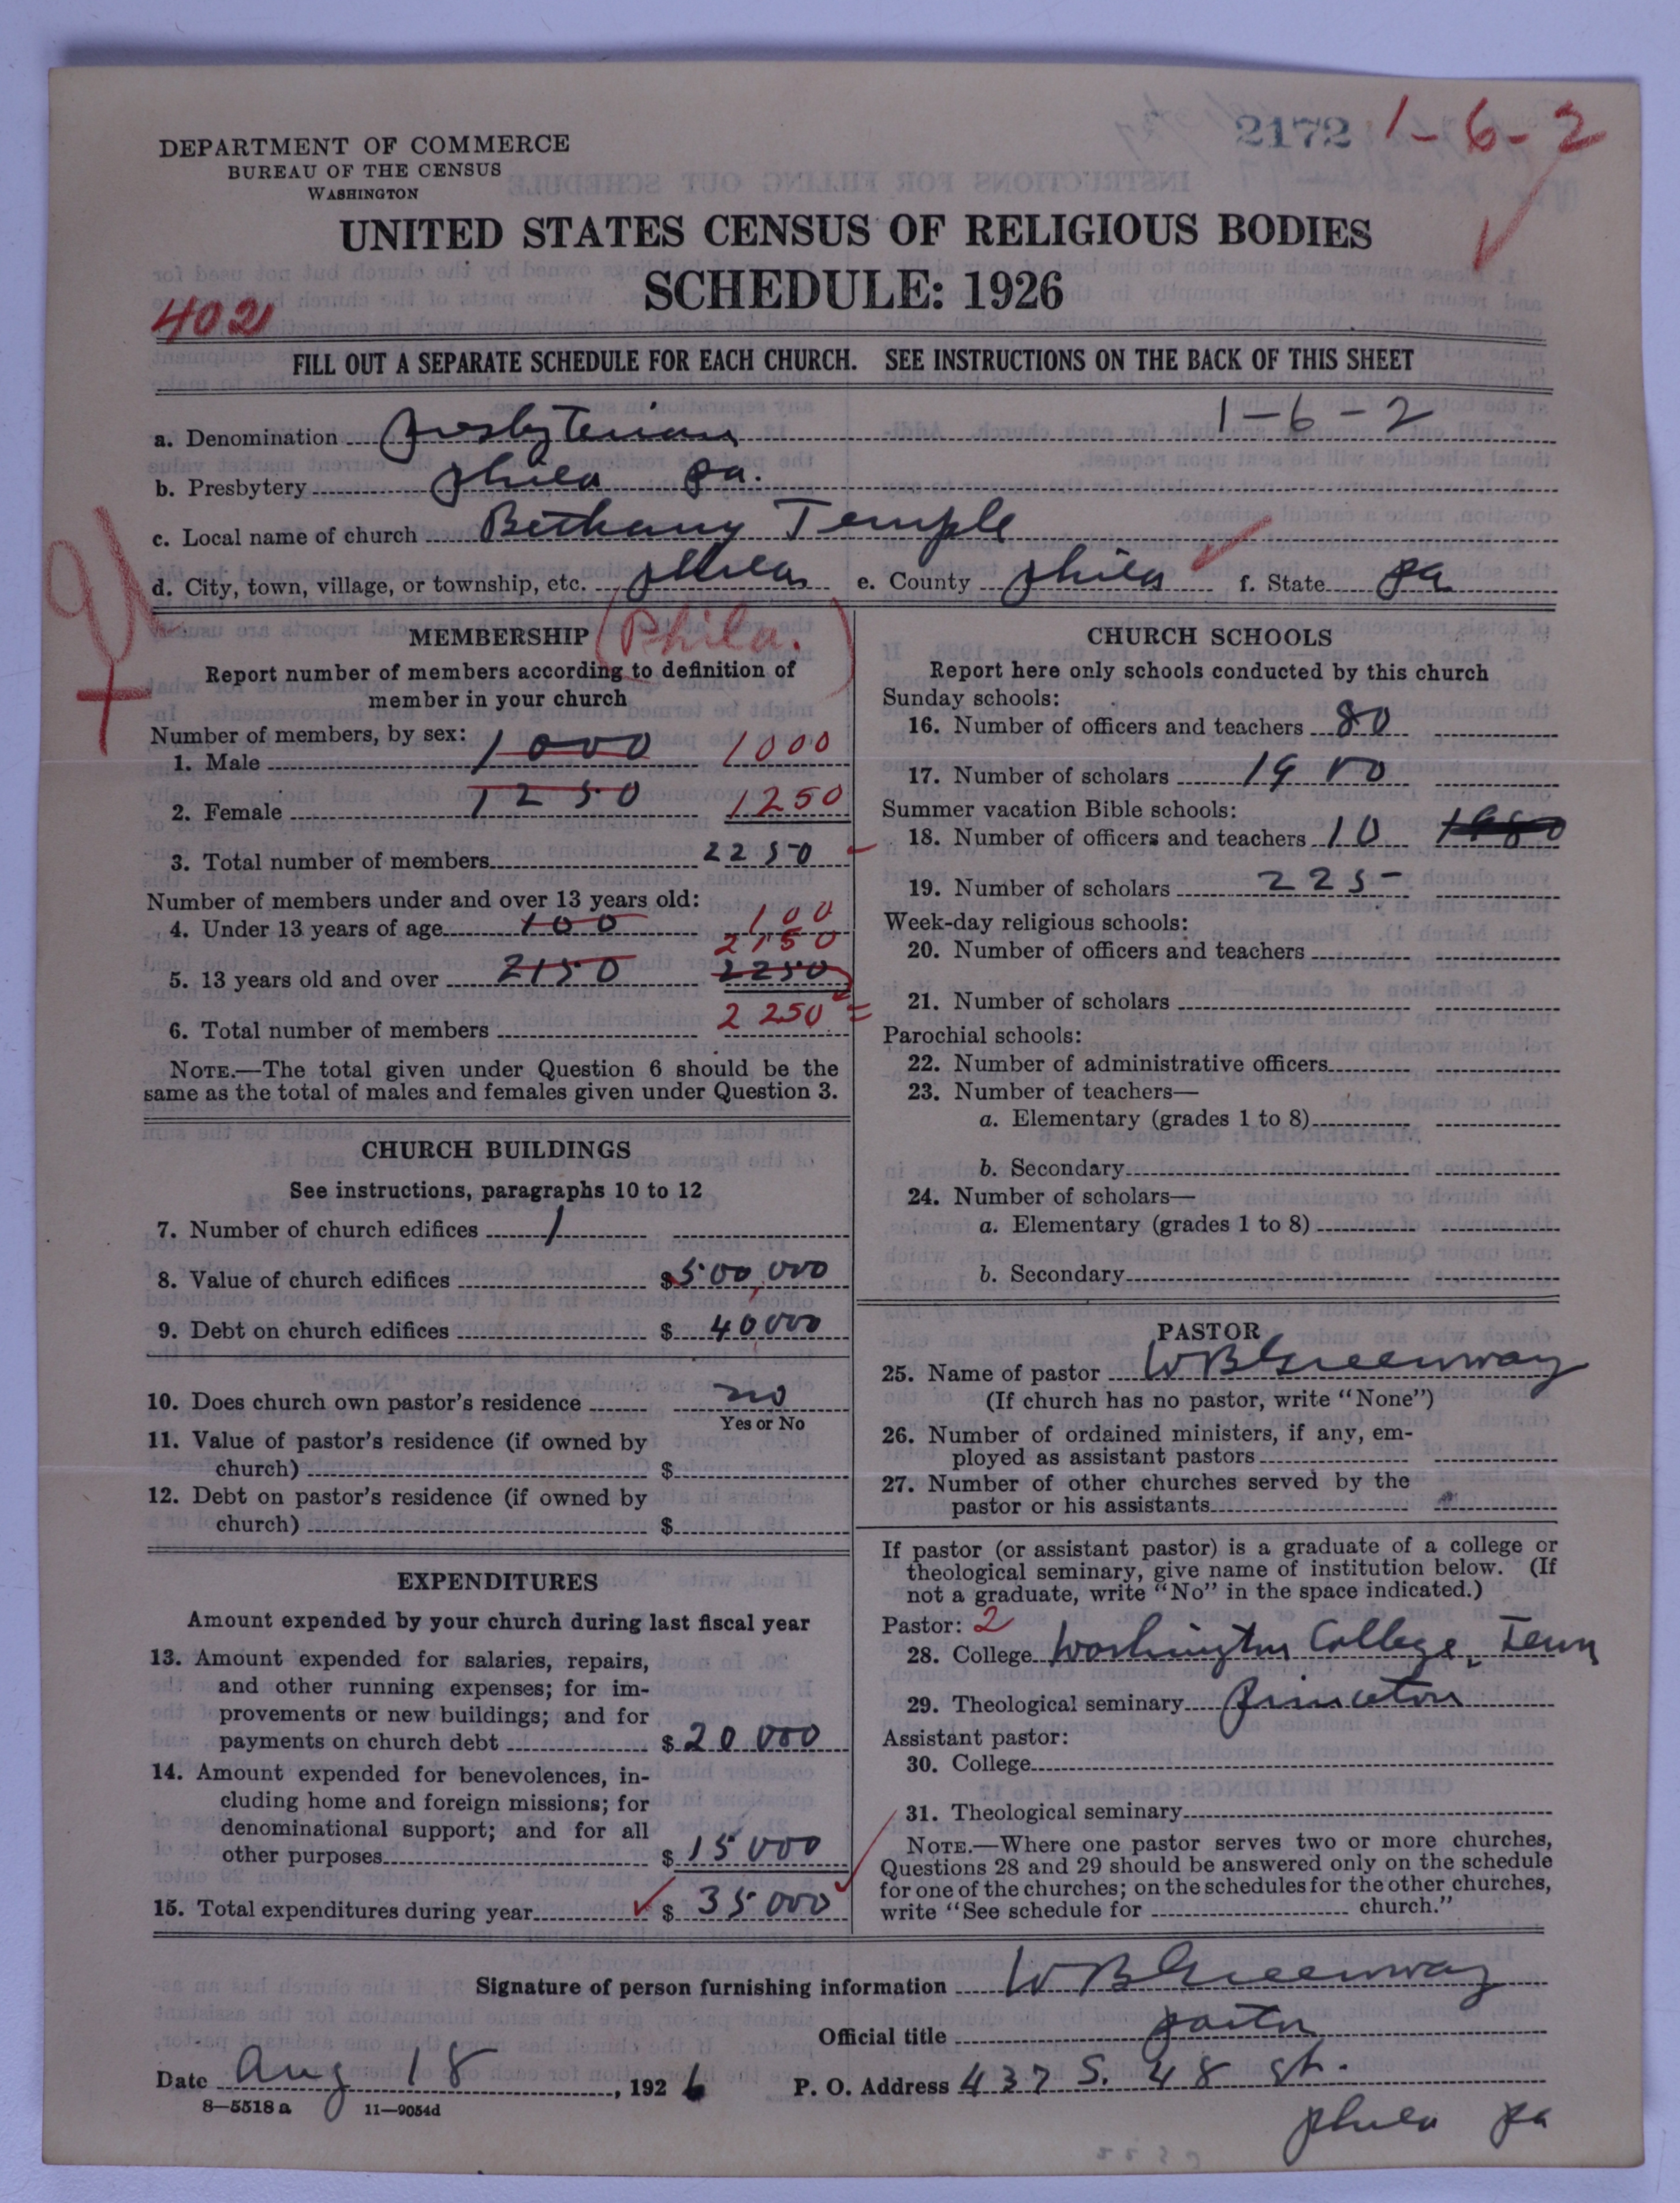 2172 1-6-2
DEPARTMENT OF COMMERCE
BUREAU OF THE CENSUS
WASHINGTON
UNITED STATES CENSUS OF RELIGIOUS BODIES
SCHEDULE: 1926
402
FILL OUT A SEPARATE SCHEDULE FOR EACH CHURCH. SEE INSTRUCTIONS ON THE BACK OF THIS SHEET
a. Denomination Presbyterian 1-6-2
b. Presbytery Phila Pa.
c. Local name of church Bethany Temple
d. City, town, village, or township, etc. Phila e. County Phila f. State Pa
MEMBERSHIP (Phila.)
Report number of members according to definition of
member in your church
Number of members, by sex:
1. Male 1000 1000
2. Female 1250 1250
3. Total number of members 2250
Number of members under and over 13 years old:
4. Under 13 years of age 100 100
2150
5. 13 years old and over 2150 2250
6. Total number of members 2250
NOTE.—The total given under Question 6 should be the
same as the total of males and females given under Question 3.
CHURCH BUILDINGS
See instructions, paragraphs 10 to 12
7. Number of church edifices 1
8. Value of church edifices $500,000
9. Debt on church edifices $ 40000
10. Does church own pastor's residence no
Yes or No
11. Value of pastor's residence (if owned by
church) $
12. Debt on pastor's residence (if owned by
church) $
EXPENDITURES
Amount expended by your church during last fiscal year
13. Amount expended for salaries, repairs,
and other running expenses; for im-
provements or new buildings; and for
payments on church debt $ 20000
14. Amount expended for benevolences, in-
cluding home and foreign missions; for
denominational support; and for all
other purposes $ 15000
15. Total expenditures during year $ 35000
CHURCH SCHOOLS
Report here only schools conducted by this church
Sunday schools:
16. Number of officers and teachers 80
17. Number of scholars
Summer vacation Bible schools:
18. Number of officers and teachers 10
19. Number of scholars 225
Week-day religious schools:
20. Number of officers and teachers
21. Number of scholars
Parochial schools:
22. Number of administrative officers
23. Number of teachers—
a. Elementary (grades 1 to 8)
b. Secondary
24. Number of scholars—
a. Elementary (grades 1 to 8)
b. Secondary
PASTOR
25. Name of pastor W B Greenway
(If church has no pastor, write "None")
26. Number of ordained ministers, if any, em-
ployed as assistant pastors
27. Number of other churches served by the
pastor or his assistants
If pastor (or assistant pastor) is a graduate of a college or
theological seminary, give name of institution below. (If
not a graduate, write "No" in the space indicated.)
Pastor: 2
28. College Washington College, Tenn
29. Theological seminary Princeton
Assistant pastor:
30. College
31. Theological seminary
NOTE.—Where one pastor serves two or more churches,
Questions 28 and 29 should be answered only on the schedule
for one of the churches; on the schedules for the other churches,
write "See schedule for church."
Signature of person furnishing information W B Greenway
Official title pastor
Date Aug 18, 1926 P. O. Address 437 S. 48 St.
8—5518 a 11—9054d
Phila Pa